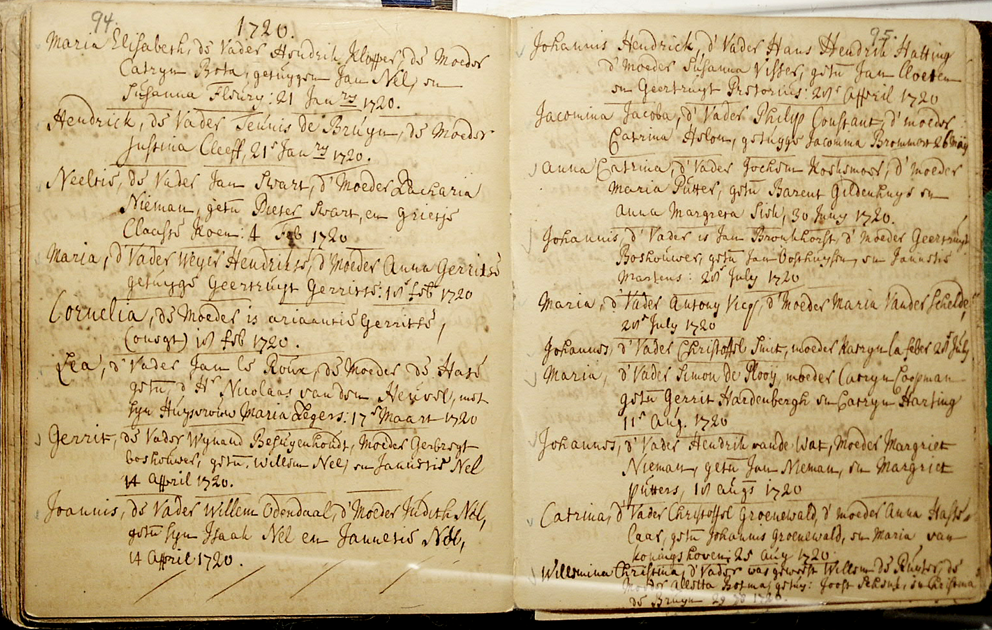 94
1720.
Maria Elisabeth, de Vader Hendrik Klopper, de Moeder
Catryn Bota, getuygen Jan Nel, en
Susanna Fleury: 21 Janry 1720.
Hendrick, de Vader Teunis de Bruyn, de Moeder
Justina Cleeff, 21 Janry 1720.
Neeltie, de Vader Jan Swart, d'Moeder Zacharia
Nieman, getu Pieter Swart, en Grietje
Claaste Koen: 4 Feb 1720
Maria, d'Vader Weyer Hendrikse, d'Moeder Anna Gerritse
getuygge Geertruyt Gerritse. 18 feb 1720
Cornelia, de Moeder is ariaantie Gerritse,
(onegt) 18 feb 1720.
Lea, d'Vader Jan le Roux, de Moeder de Hase
getu, d'Hr Nicolaas van den Heuvel, met
syn Huysvrouw Maria Legers. 17 Maart 1720
Gerrit, de Vader Wynand Besuyenhoudt, Moeder Gerbregt
boshouwer, getu, Willem Nel, en Jannetie Nel
14 Affril 1720.
Joannis, de Vader Willem Odendaal, d'Moeder Judith Nel,
getu syn Isaak Nel en Jannetie Nel,
14 Affril 1720.
95
Johannis Hendrick, d'Vader Hans Hendrik Hatting
d'Moeder Susanna Visser, getu Jam Cloeten
en Geertruyt Pretorius: 28 Affril 1720
Jacomina Jacoba, d'Vader Philip Constant, d'moeder
Catrina, getugge Jacomina Brommert 26 may
anna Catrina, d'Vader Jochem Koshmoer, d'Moeder
Maria Putter, getu Barent Gildenhuys en
Anna Margreta Sish, 30 Juny 1720.
Johannis, d'Vader is Jan Bronkhorst, d'Moeder Geertruyt
Boshouwer, getu Jan Oosthuysen, en Jannetie
Martens: 28 July 1720
Maria, d'Vader Antony Vicq, d'Moeder Maria Vander Schelde,
28 July 1720
Johannes, d'Vader Christoffel Smit, moeder Katryn la feber 28 July
Maria, d'Vader Simon de Plooy, moeder Catryn Coopman
getu Gerrit Hardenbergh en Catryn Harting
11 Aug. 1720
Johannes, d'Vader Hendrik vande Wat, Moeder Margriet
Nieman, getu Jan Nieman, en Margriet
putters, 18 augs 1720
Catrina, d'Vader Christoffel Groenewald, d'moeder Anna Hassel
Caar, getu Johannis Groenewald, en Maria van
konings hoven, 25 aug 1720.
Willemina Christina, d'Vader was geweest Willem de Ruyter, de
Moeder Aletta Botma, getu: Joost, en Christina
de Bruyn 1720.